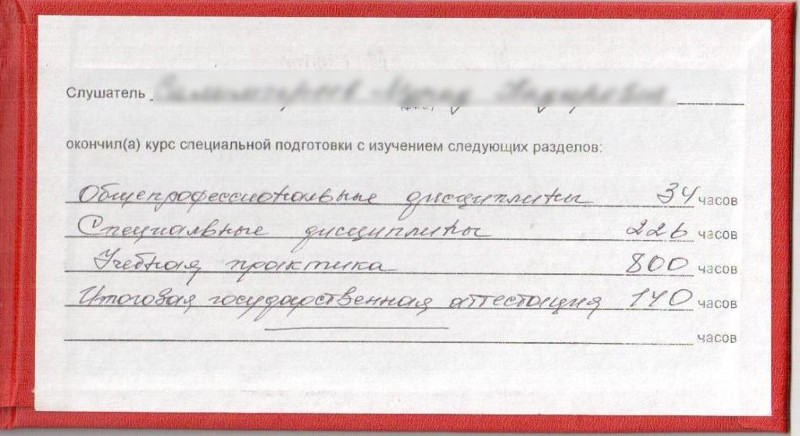 Слушатель
окончил(а) курс специальной подготовки с изучением следующих разделов:
Общепрофессиональные дисциплины 34 часов
Специальные дисциплины 226 часов
Учебная практика 800 часов
Итоговая государственная аттестация 140 часов
часов